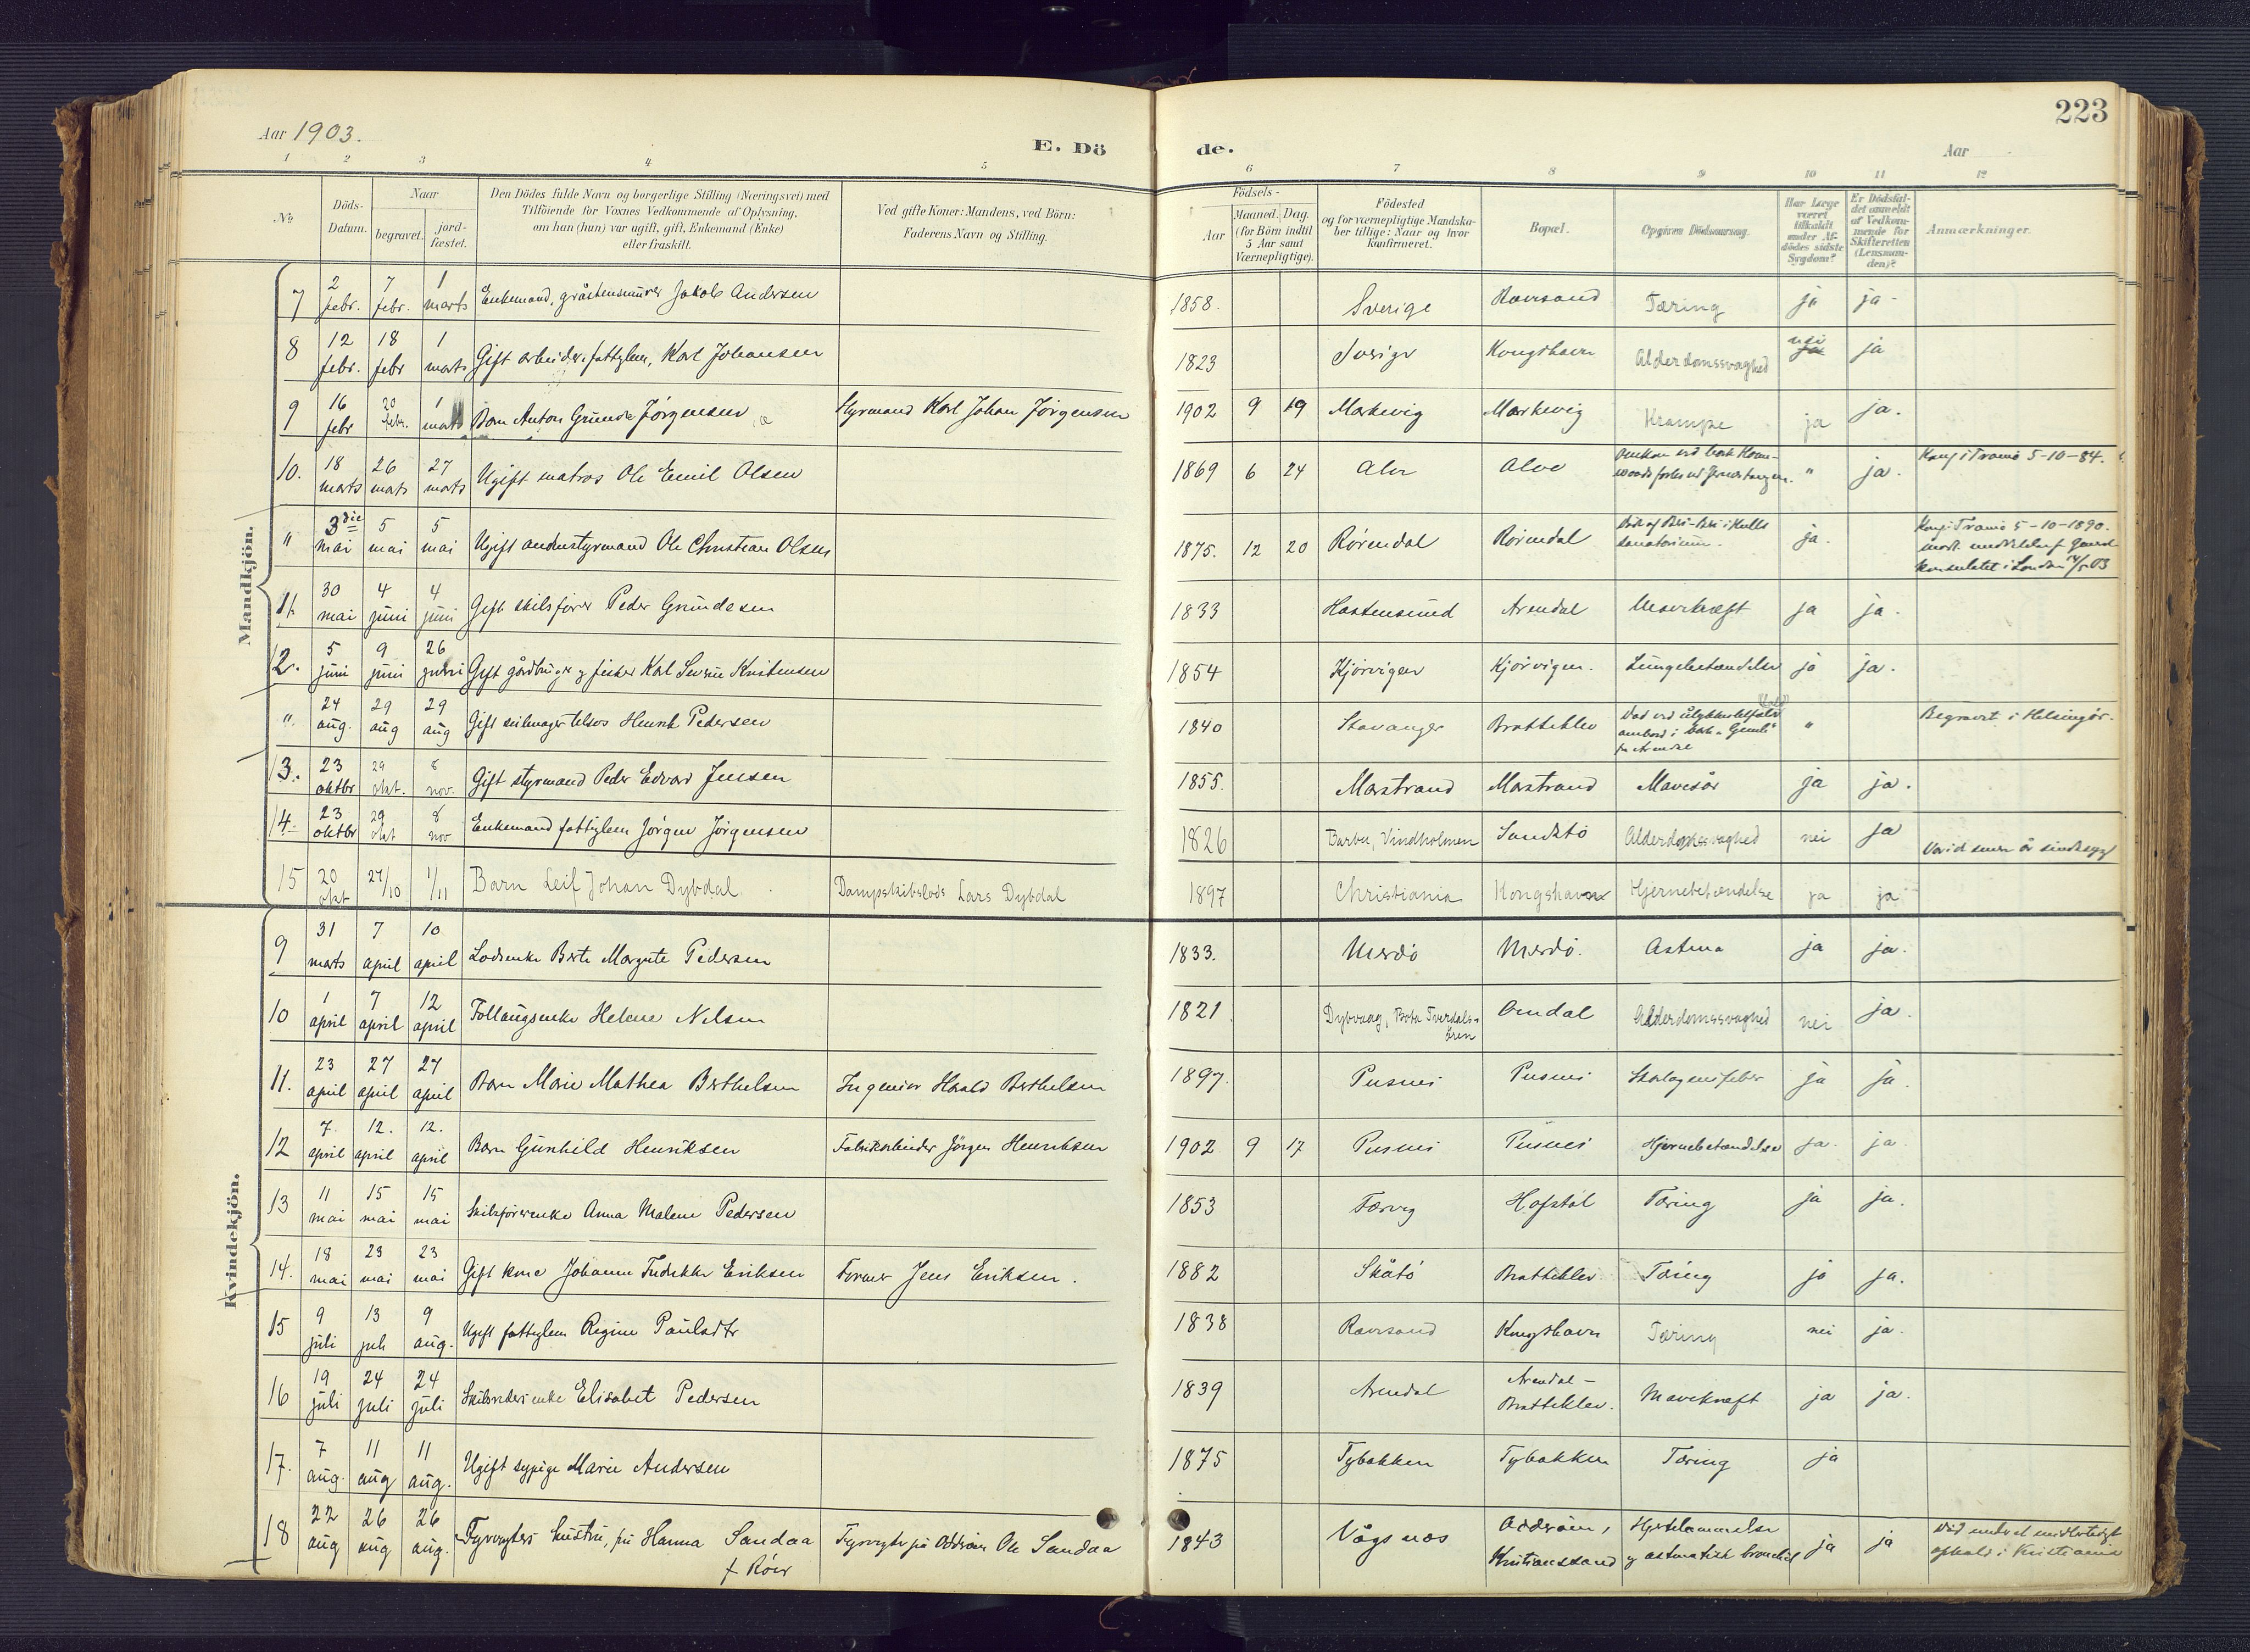 223
Aar 1903.
E. Dö
de.
Aar
1 2 3 4 5 6 7 8 9 10 11 12
No
Döds-
Datum.
Naar
begravet.
jord-
fæstet.
Den Dödes fulde Navn og borgerlige Stilling (Næringsvei) med
Tilföiende for Voxnes Vedkommende af Oplysning,
om han (hun) var ugift, gift, Enkemand (Enke)
eller fraskilt.
Ved gifte Koner: Mandens, ved Börn:
Faderens Navn og Stilling.
Födsels-
Aar
Maaned. Dag.
(for Börn indtil
5 Aar samt
Værnepligtige).
Födested
og for værnepligtige Mandska-
ber tillige: Naar og hvor
konfirmeret.
Bopæl.
Opgiven Dödsaarsag.
Har Læge
været
tilkaldt
under Af-
dödes sidste
Sygdom?
Er Dödsfal-
det anmeldt
af Vedkom-
mende for
Skifteretten
(Lensman-
den)?
Anmærkninger.
Mandkjön.
7 2 febr. 7 febr. 1 marts Enkemand, gråstensmurer Jakob Andersen 1858. Sverige Ravnsand Tæring ja ja
8 12 febr. 18 febr 1 marts Gift arbeider, fattiglem, Karl Johansen 1823 Sverige Kongshavn Alderdomssvaghed nei ja
9 16 febr 20 febr. 1 marts Barn Anton Gunde Jørgensen Styrmand Karl Johan Jörgensen 1902 9 19 Markevig Markevig Krampe ja ja.
10. 18 marts 26 marts 27 marts Ugift matros Ole Emil Olsen 1869 6 24 Alve Alve " ja. Konf i Tromö 5-10-84.
" 3die mai 5 mai 5 mai Ugift andenstyrmand Ole Christian Olsen 1875. 12 20 Rörendal Rörendal Död af Beri-Beri i Hulls
sanatorium. ja. Konf i Tromö 5-10-1890.
konsulatet i London 14/5 03
11. 30 mai 4 juni 4 juni Gift skibsfører Peder Gundesen 1833 Hastensund Arendal Mavekræft ja ja.
12. 5 juni 9 juni 26 juni Gift gårdbruger og fisker Karl Severin Kristensen 1854 Kjørvigen Kjörvigen. Lungebetændelse ja ja.
" 24 aug. 29 aug 29 aug Gift seilmager Henrik Pedersen 1840 Stavanger Bratteklev Død ved ulykkestilfælde
ombord i
fra Arendal " Begravet i Helsingör.
13. 23 oktbr 29 okt. 8 nov. Gift styrmand Peder Edvard Jensen 1855. Marstrand Marstrand Mavesår ja ja.
14. 23 oktbr 29 okt 8 nov Enkemand fattiglem Jörgen Jörgensen 1826 Barbu, Vindholmen Sandstö Alderdomssvaghed nei ja
Var i d senere år sindssyg
15 20 okt 27/10 1/11 Barn Leif Johan Dybdal. Dampskibslods Lars Dybdal 1897 Christiania Kongshavn Hjernebetændelse ja ja
Kvindekjön.
9 31 marts 7 april 10 april Lodsenke Berte Margrete Pedersen 1833. Merdö Merdö. Astma ja ja.
10 1 april 7 april 12 april Follaugsenke Helene Nilsen 1821 Dybvaag, Bota Tverdals-
ören Arendal Alderdomssvaghed nei ja.
11. 23 april 27 april 27 april Barn Marie Mathea Berthelsen Ingeniør Harald Berthelsen 1897. Pusnes Pusnes Skarlagensfeber ja ja.
12 7. april 12. april 12. april Barn Gunhild Henriksen Fabrikarbeider Jörgen Henriksen 1902 9 17 Pusnes Pusnes Hjernebetændelse ja. ja
13 11 mai 15 mai 15 mai Skibsförerenke Anna Malene Pedersen 1853 Færvig Hofstøl Tæring ja ja.
14. 18 mai 23 mai 23 mai Gift kone Johanne Fredrikke Eriksen Former Jens Eriksen. 1882 Skåtö Bratteklev Tæring ja ja.
15 9 juli 13 juli 9 aug. Ugift fattiglem Regine Paulsdtr 1838 Ravnsand Kongshavn Tæring nei ja
16 19 juli 24 juli 24 juli Skibsreders enke Elisabet Pedersen 1839 Arendal Arendal -
Bratteklev. Mavekræft ja ja.
17. 7 aug. 11 aug 11 aug. Ugift sypige Marie Andersen 1875 Tybakken Tybakken Tæring ja
18 22 aug 26 aug 26 aug. Fyrvogters hustru, fru Hanna Sandaa
f. Röer Fyrvogter på Odderøen Ole Sandaa 1843 Vågsnes Odderøen,
Kristianssand Hjertelammelse
og astmatisk bronchit ja ja Död under et midlertidigt
ophold i Kristiania